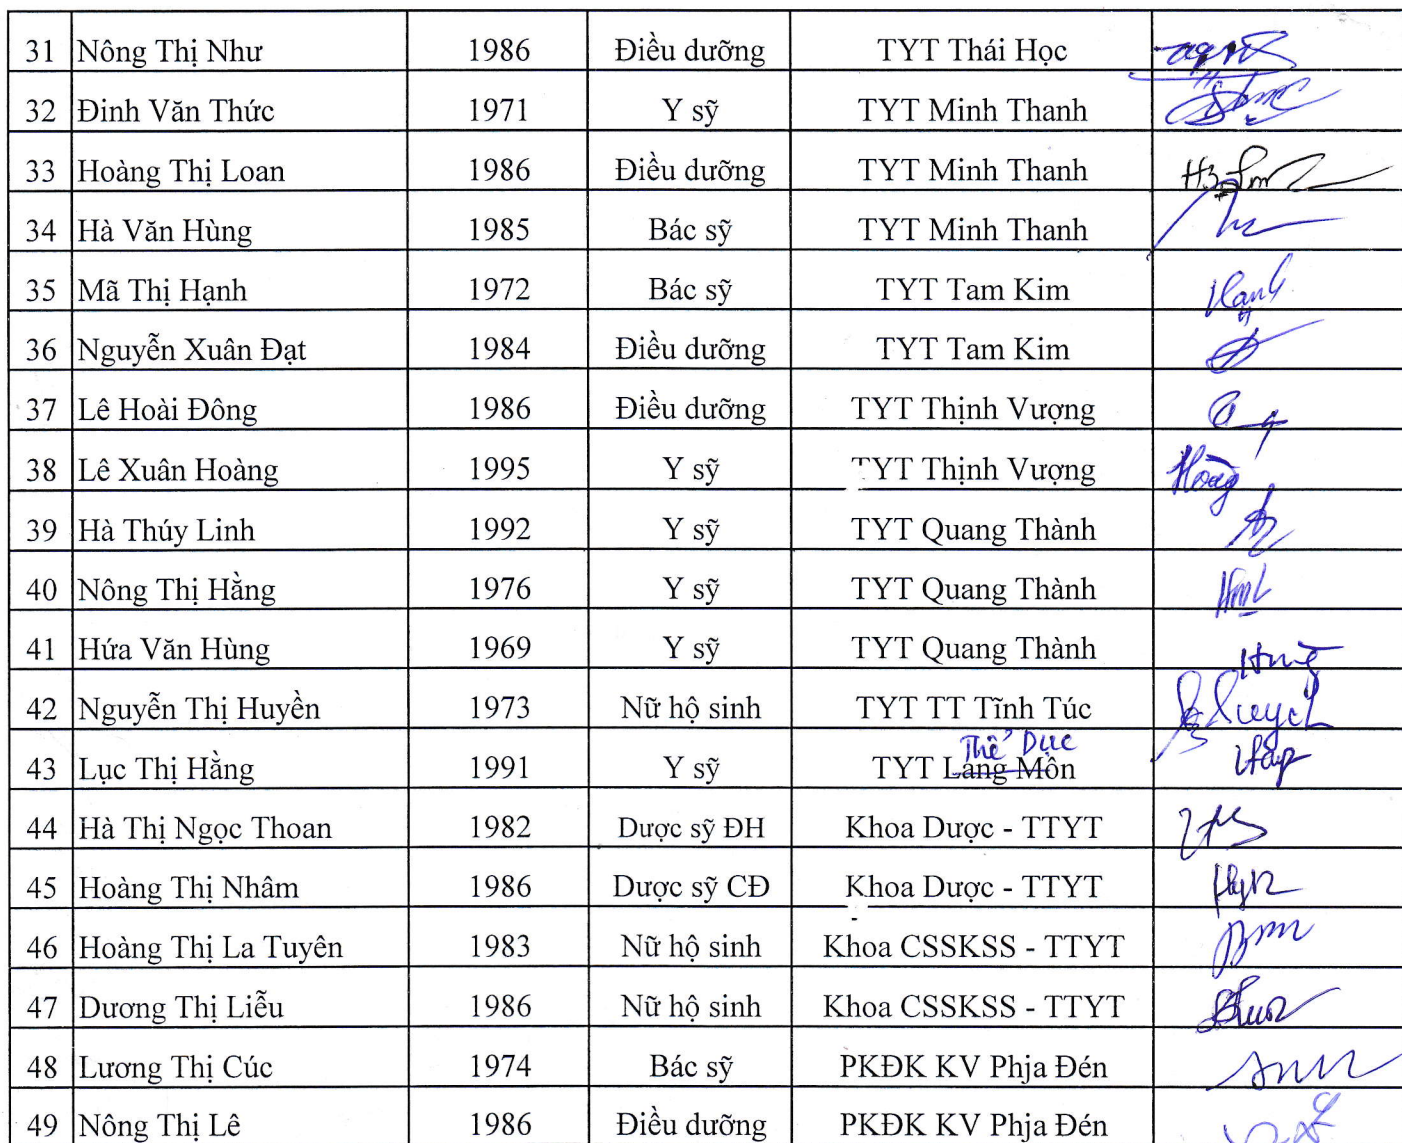 31 Nông Thị Như 1986 Điều dưỡng TYT Thái Học
32 Đinh Văn Thức 1971 Y sỹ TYT Minh Thanh
33 Hoàng Thị Loan 1986 Điều dưỡng TYT Minh Thanh
34 Hà Văn Hùng 1985 Bác sỹ TYT Minh Thanh
35 Mã Thị Hạnh 1972 Bác sỹ TYT Tam Kim Hạnh
36 Nguyễn Xuân Đạt 1984 Điều dưỡng TYT Tam Kim
37 Lê Hoài Đông 1986 Điều dưỡng TYT Thịnh Vượng
38 Lê Xuân Hoàng 1995 Y sỹ TYT Thịnh Vượng Hoàng
39 Hà Thúy Linh 1992 Y sỹ TYT Quang Thành
40 Nông Thị Hằng 1976 Y sỹ TYT Quang Thành
41 Hứa Văn Hùng 1969 Y sỹ TYT Quang Thành Hùng
42 Nguyễn Thị Huyền 1973 Nữ hộ sinh TYT TT Tĩnh Túc
Thể Dục
43 Lục Thị Hằng 1991 Y sỹ TYT Lang Môn
44 Hà Thị Ngọc Thoan 1982 Dược sỹ ĐH Khoa Dược - TTYT
45 Hoàng Thị Nhâm 1986 Dược sỹ CĐ Khoa Dược - TTYT
46 Hoàng Thị La Tuyên 1983 Nữ hộ sinh Khoa CSSKSS - TTYT
47 Dương Thị Liễu 1986 Nữ hộ sinh Khoa CSSKSS - TTYT
48 Lương Thị Cúc 1974 Bác sỹ PKĐK KV Phja Đén
49 Nông Thị Lê 1986 Điều dưỡng PKĐK KV Phja Đén